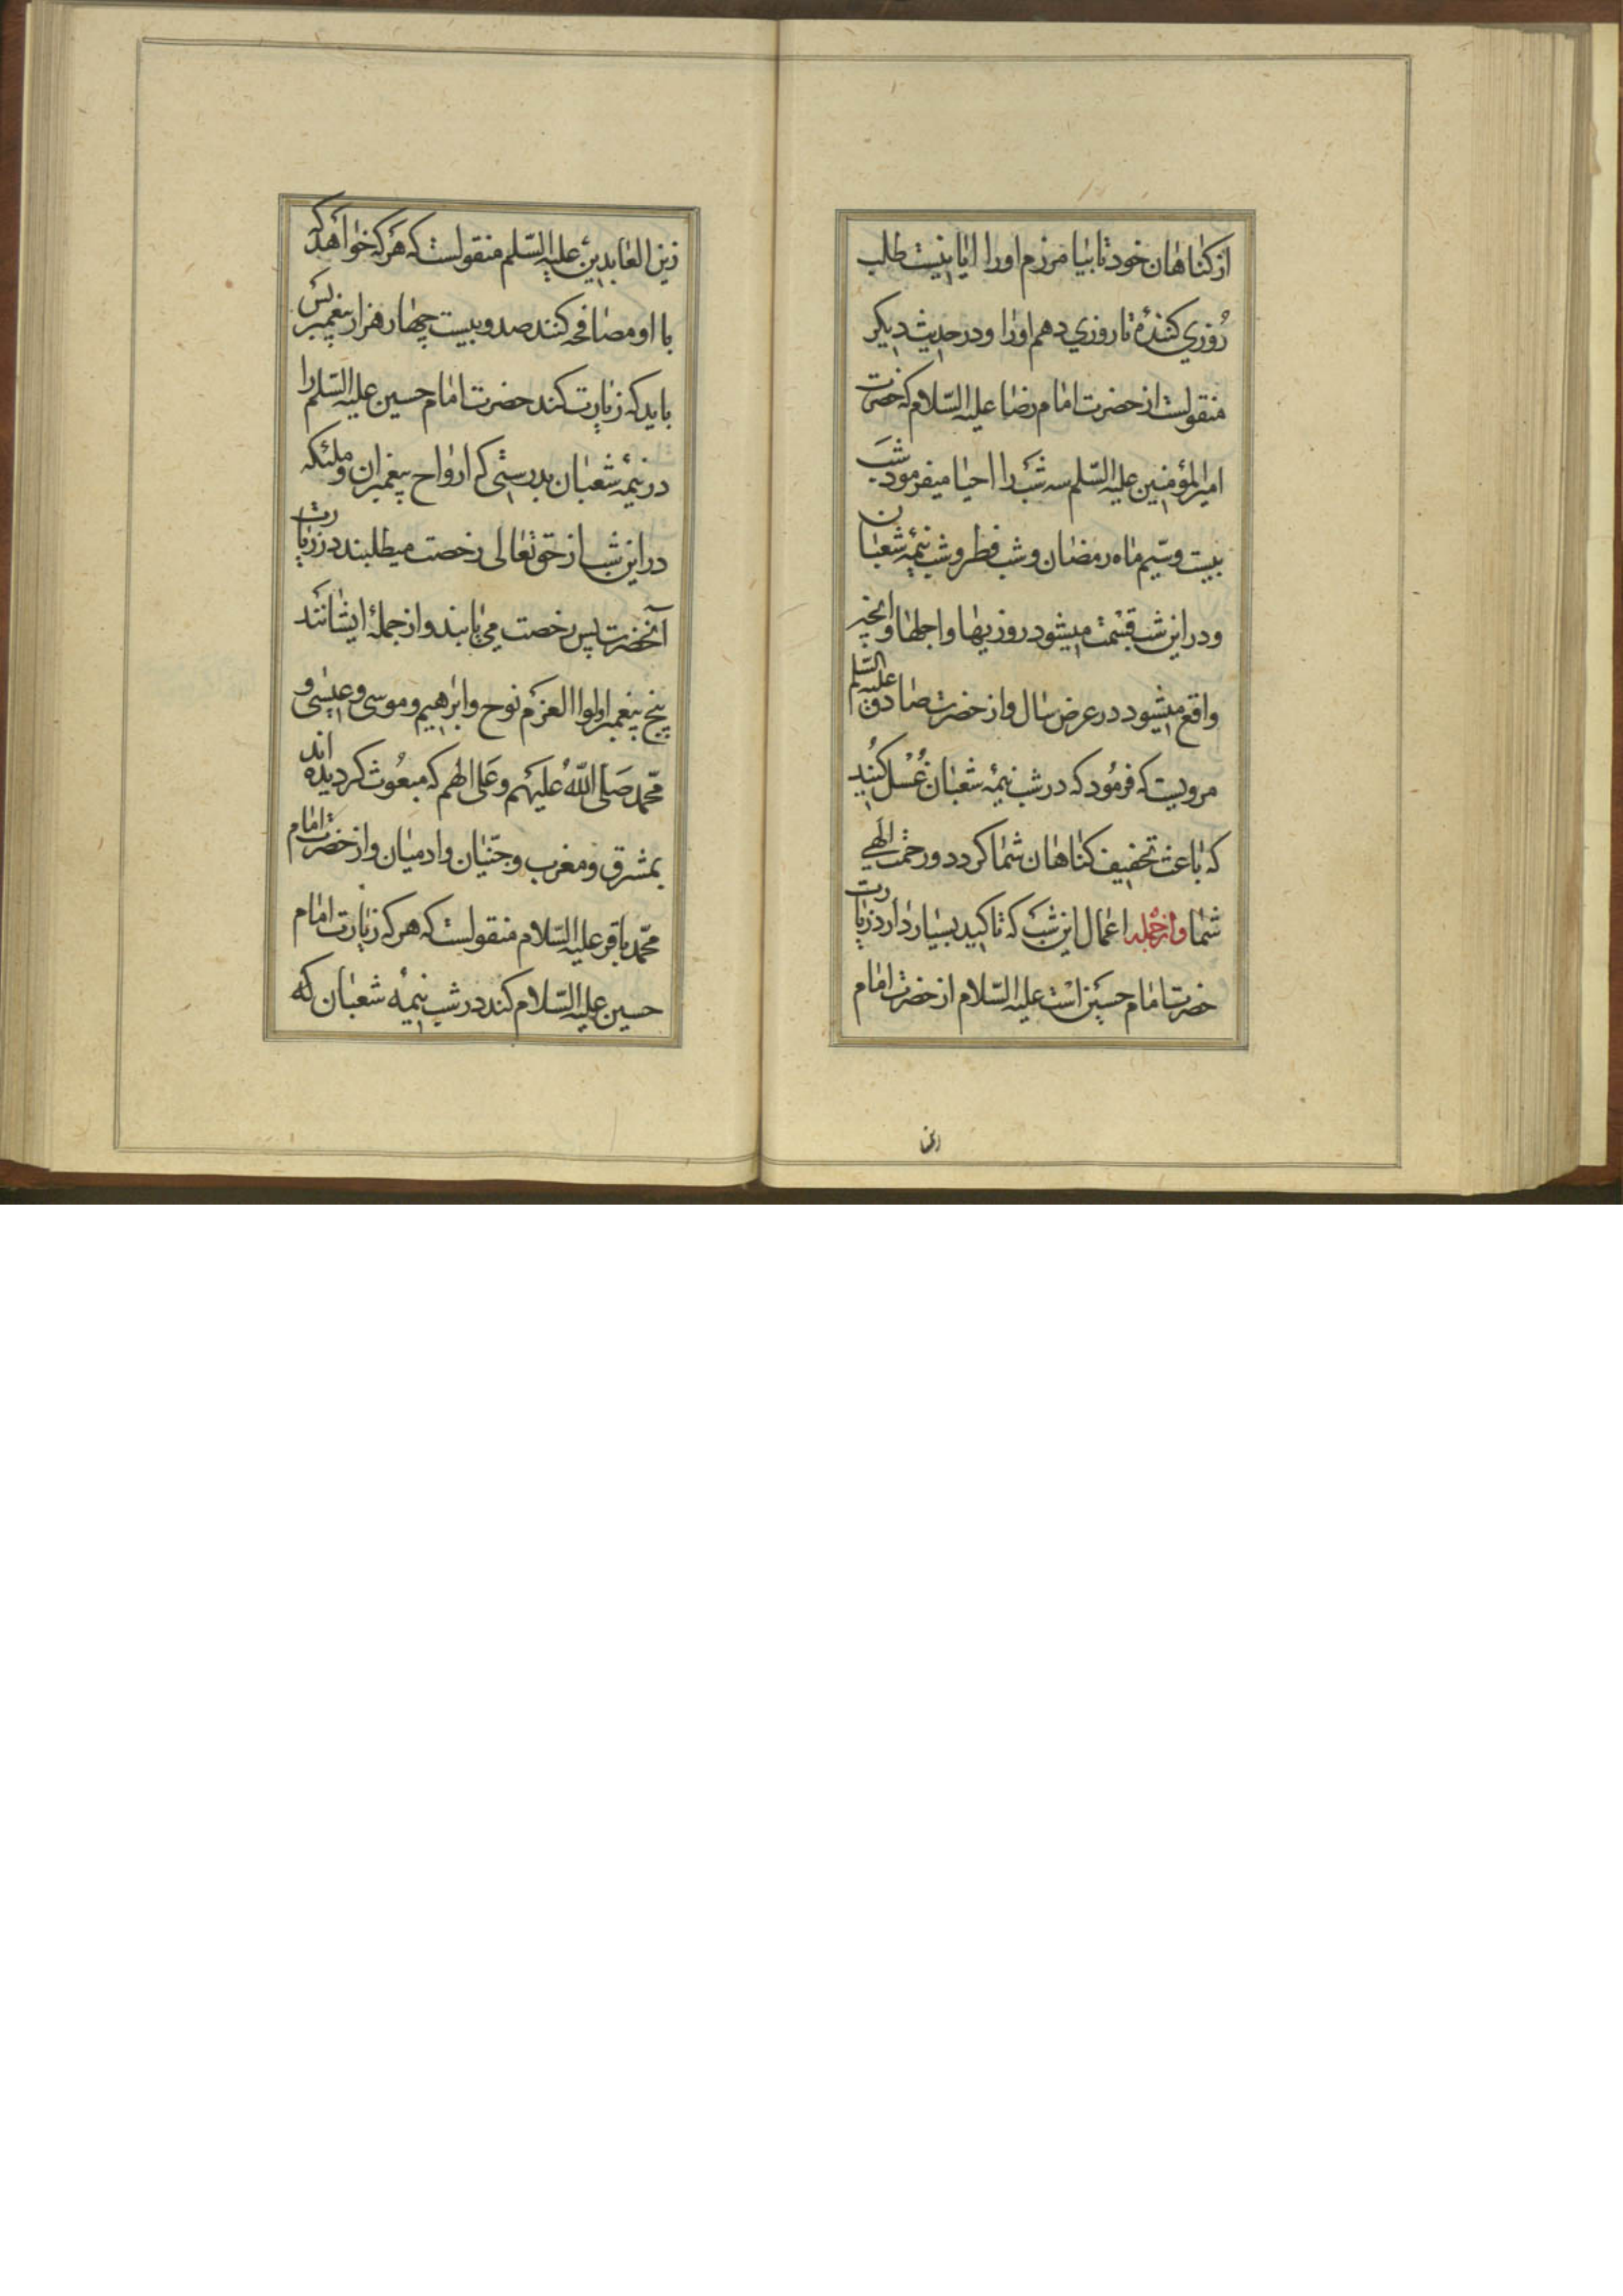 از کناهان خود تا بیامرزم اورا ایا نیست طلب
رُوزی کننده تا روزی دهم اورا و در حدیث دیکر
منقولست از حضرت امام رضا علیه السّلام که حضرت
امیرالمؤمنین علیه السّلم سه شب را احیا میفرمود شب
بیست و سّیم ماه رمضان و شب فطر و شب نیمهٔ شعبان
و در این شب قسمت میشود روزیها و اجلها و انچه
واقع میشود در عرض سال و از حضرت صادق علیه السّلم
مرویست که فرمُود که در شب نیمهٔ شعبان غُسْل کُنید
که باعث تخفیف کناهان شما کردد و رحمت الهی
شما وازجمله اعمال این شب که تاکید بسیار دارد زیارت
حضرت امام حسین است علیه السّلام از حضرت امام
زین
زین العابدین علیه السّلم منقولست که هرکه خواهد که
با او مصافحه کنند صد و بیست چهار هزار پیغمبر پس
باید که زیارت کند حضرت امام حسین علیه السّلم را
در نیمهٔ شعبان بدرستی که ارواح پیغمبران و ملئکه
در این شب از حق تعالی رخصت میطلبند در زیارت
آنحضرت پس رخصت می یابند و از جملهٔ ایشانند
پنج پیغمبر اولوا العزم نوح و ابرهیم و موسی و عیسی و
محّمد صَلَی اللّهُ عَلیهم وعَلی الهم که مبعُوث کردیده اند
بمشرق و مغرب و جنّیان و ادمیان و از حضرت امام
محّمد باقر علیه السّلام منقولست که هر که زیارت امام
حسین علیه السّلام کند در شب نیمهٔ شعبان که